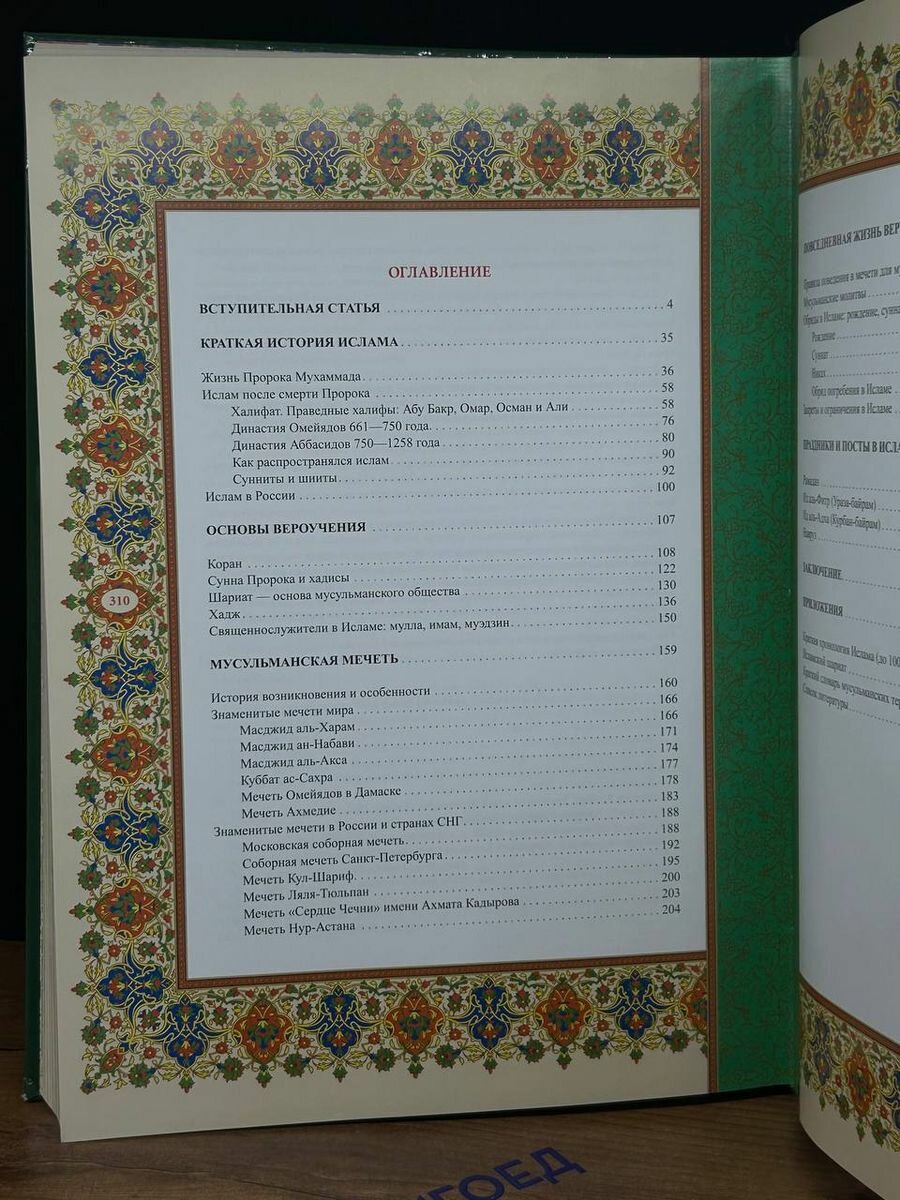 ОГЛАВЛЕНИЕ
ВСТУПИТЕЛЬНАЯ СТАТЬЯ 4
КРАТКАЯ ИСТОРИЯ ИСЛАМА 35
Жизнь Пророка Мухаммада 36
Ислам после смерти Пророка 58
Халифат. Праведные халифы: Абу Бакр, Омар, Осман и Али 58
Династия Омейядов 661—750 года. 76
Династия Аббасидов 750—1258 года 80
Как распространялся ислам 90
Сунниты и шииты 92
Ислам в России 100
ОСНОВЫ ВЕРОУЧЕНИЯ 107
Коран 108
Сунна Пророка и хадисы 122
Шариат — основа мусульманского общества 130
Хадж 136
Священнослужители в Исламе: мулла, имам, муэдзин 150
МУСУЛЬМАНСКАЯ МЕЧЕТЬ 159
История возникновения и особенности 160
Знаменитые мечети мира 166
Масджид аль-Харам 166
Масджид ан-Набави 171
Масджид аль-Акса 174
Куббат ас-Сахра 177
Мечеть Омейядов в Дамаске 178
Мечеть Ахмедие 183
Знаменитые мечети в России и странах СНГ 188
Московская соборная мечеть 188
Соборная мечеть Санкт-Петербурга 192
Мечеть Кул-Шариф 195
Мечеть Ляля-Тюльпан 200
Мечеть «Сердце Чечни» имени Ахмата Кадырова 203
Мечеть Нур-Астана 204
310
ПОВСЕДНЕВНАЯ ЖИЗНЬ ВЕР
Правила поведения в мечети для му
Мусульманские молитвы
Обряды в Исламе: рождение, сунна
Рождение
Суннат
Никах
Обряд погребения в Исламе
Запреты и ограничения в Исламе
ПРАЗДНИКИ И ПОСТЫ В ИСЛА
Рамадан
Ид аль-Фитр (Ураза-байрам)
Ид аль-Адха (Курбан-байрам)
Навруз
ЗАКЛЮЧЕНИЕ
ПРИЛОЖЕНИЯ
Краткая хронология Ислама (до 100
Исламский шариат
Краткий словарь мусульманских тер
Список литературы
ГОЕД